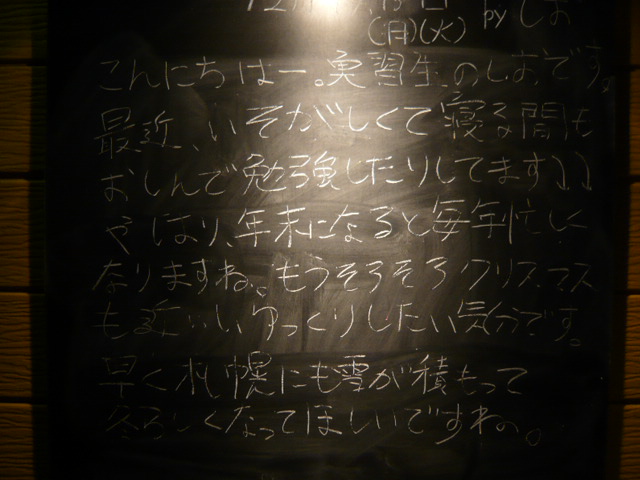 (月)(火) by しお
こんにちはー。実習生のしおです。
最近、いそがしくて寝る間も
おしんで勉強したりしてます
やはり、年末になると毎年忙しく
なりますね。もうそろそろクリスマス
も近いしゆっくりしたい気分です。
早く札幌にも雪が積もって
冬らしくなってほしいですね。